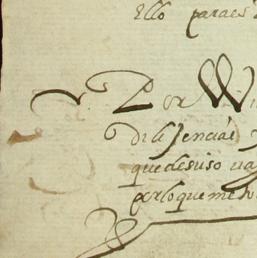 Ello para es
Por
diligencias
que desuso va
por lo que me